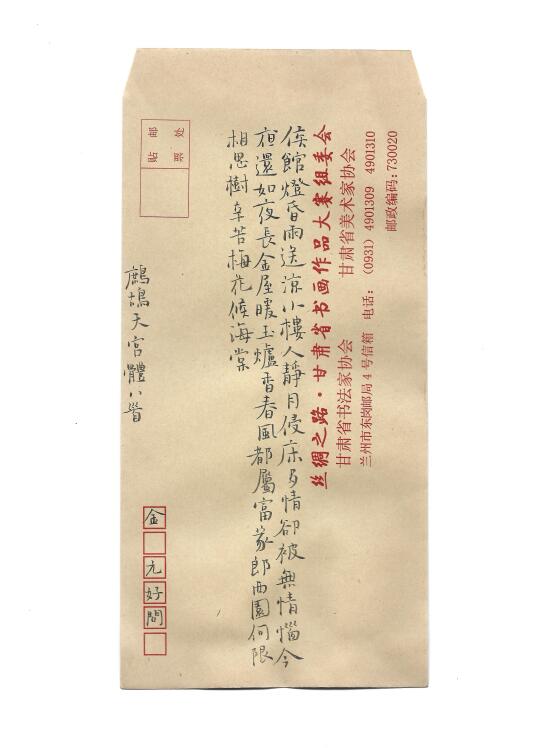 丝绸之路·甘肃省书画作品大赛组委会
甘肃省书法家协会 甘肃省美术家协会
兰州市东岗邮局4号信箱 电话:(0931) 4901309 4901310
邮政编码:730020
候館燈昏雨送涼小樓人靜月侵床多情卻被無情惱今
夜還如夜長金屋暖玉爐香春風都屬富家郎西園何限
相思樹辛苦梅花候海棠
贴邮
票处
鷓鴣天宮體八首
金 元好問